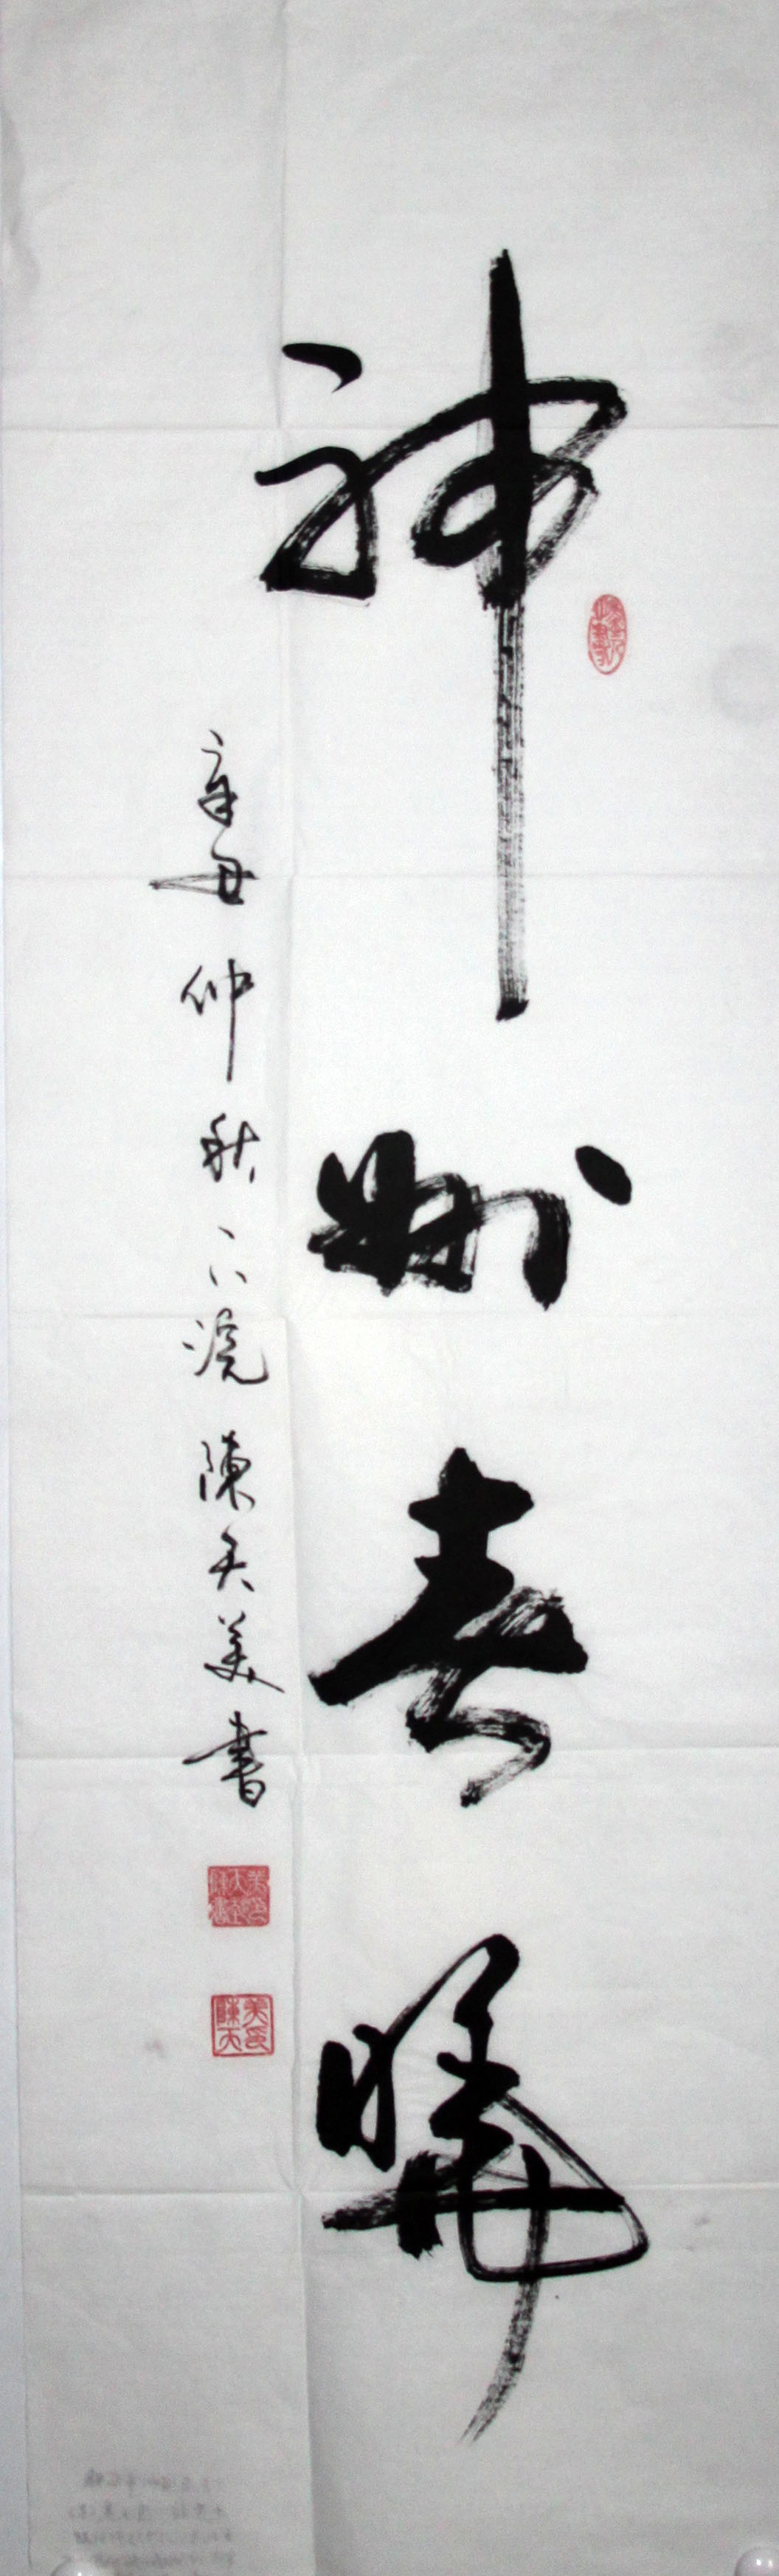 神州春曉
辛丑仲秋 六浣 陳天美書